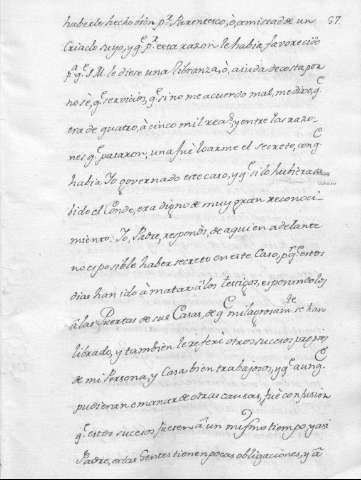 67
haberle hecho dho̅n pr. Parentesco, ò, amistad de un
Criado suyo, y qe. pr. esta razon le habia favorecido
pa. qe. S.M. le diese una Libranza, ò, aiuda de costa por
no sè, qe. servicios, qe. si no me acuerdo mal, me dixo, qe.
era de quatro, à cinco mil reas. y entre las razo-
nes qe. pasaron, una fuè loarme el secreto, con qe.
habia Yo governado este caso, y qe. si lo hubiera sa-
bido el Conde, era digno de muy gran reconoci-
miento: Yo, Padre, respondì, de aqui en adelante
no es posible haber secreto en este Caso, pr. qe. estos
dias han ido à matar à los testigos, esperandolos
à las Puertas de sus Casas, de qe. milagrosamte. se han
librado, y tambien le referì otros sucesos propios
de mi Persona, y Casa bien trabajosos, y qe. aunqe.
pudieran emanar de otras causas, fuè confusion
qe. estos sucesos fuesen à un mismo tiempo, y asi
Padre, estas Gentes tienen pocas obligaciones, y à